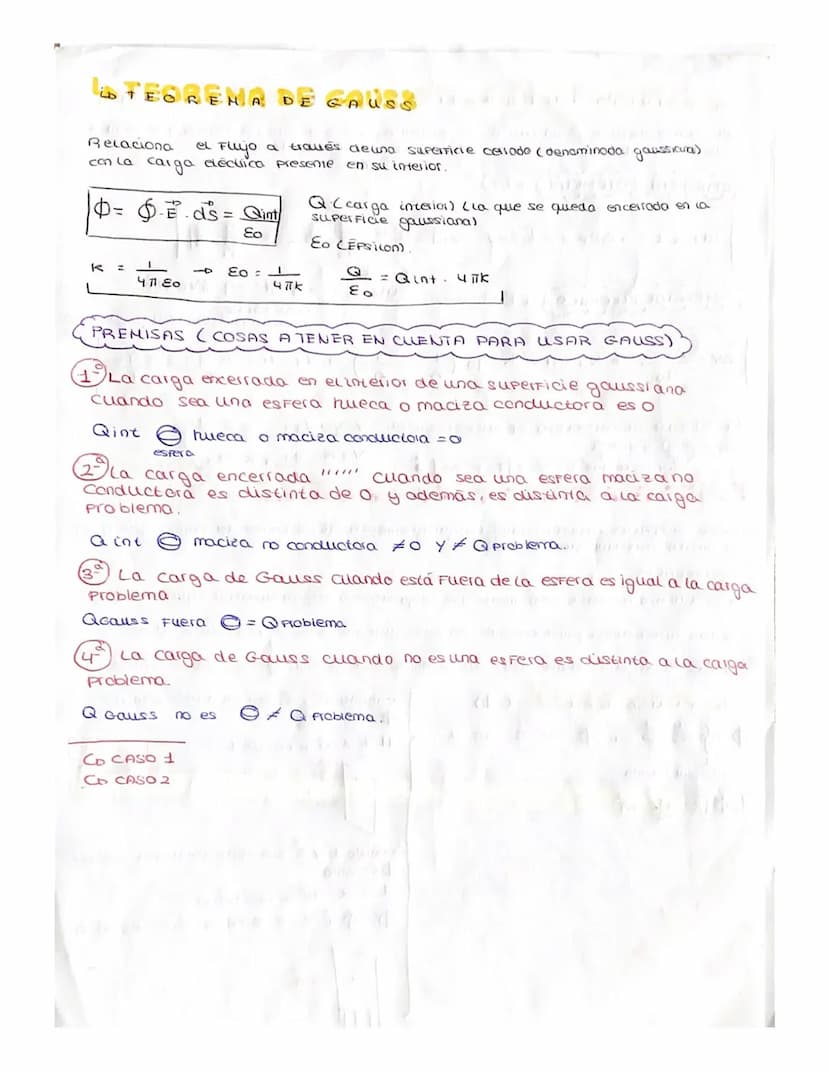 ↳ TEOREMA DE GAUSS
Relaciona el Flujo a través de una superficie cerrada (denominada gaussiana)
con la carga eléctrica presente en su interior.
Φ = ∮ · E⃗ · ds⃗ = Qint / εo
Q (carga interior) (la que se queda encerrada en la
superficie gaussiana)
εo (Épsilon).
K = 1 / 4πεo → εo = 1 / 4πK   Q / εo = Qint · 4πK
PREMISAS (COSAS A TENER EN CUENTA PARA USAR GAUSS)
1ª La carga encerrada en el interior de una superficie gaussiana
cuando sea una esfera hueca o maciza conductora es 0
Qint ⊖ hueca o maciza conductora = 0
esfera
2ª La carga encerrada '''''' cuando sea una esfera maciza no
conductora es distinta de 0, y además, es distinta a la carga
problema.
Qint ⊖ maciza no conductora ≠0 Y ≠ Qproblema.
3ª La carga de Gauss cuando está fuera de la esfera es igual a la carga
problema.
QGauss Fuera ⊖ = Qproblema
4ª La carga de Gauss cuando no es una esfera es distinta a la carga
problema.
Q Gauss no es ⊖ ≠ Q problema.
↳ CASO 1
↳ CASO 2